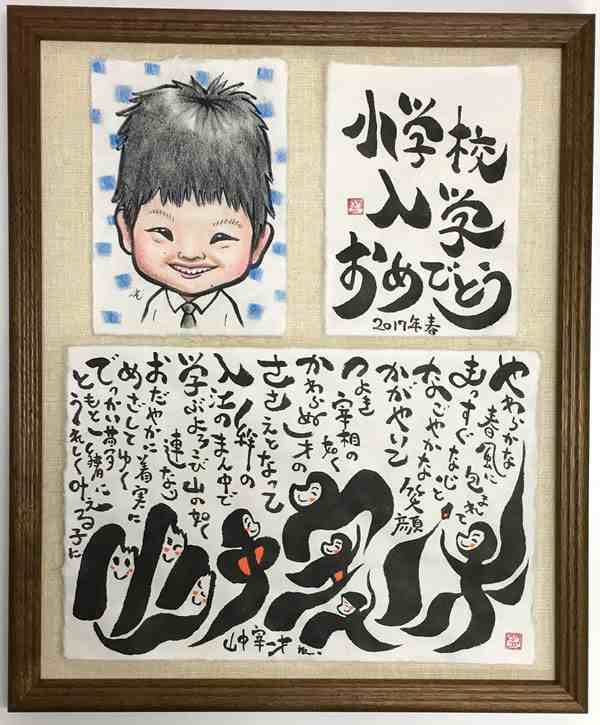 小学校
入学
おめでとう
2017年春
やわらかな
春風に包まれて
まっすぐな心と
なごやかな
笑顔
かがやいて
つよき宰相の
如く
かわらぬ才の
ささえとなって
絆の
のまん中で
学ぶよろこび山の如く
連なり
おだやかに着実に
めざしてゆく
でっかい夢を
うれしく叶える子に
山中宰